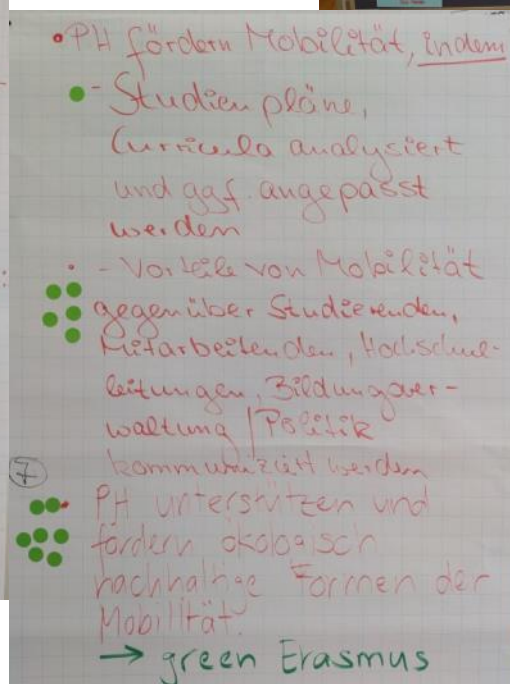 • PH fördern Mobilität, indem
- Studienpläne,
Curricula analysiert
und ggf. angepasst
werden
- Vorteile von Mobilität
gegenüber Studierenden,
Mitarbeitenden, Hochschul-
leitungen, Bildungsver-
waltung / Politik
kommuniziert werden
7
• PH unterstützen und
fördern ökologisch
nachhaltige Formen der
Mobilität.
→ green Erasmus